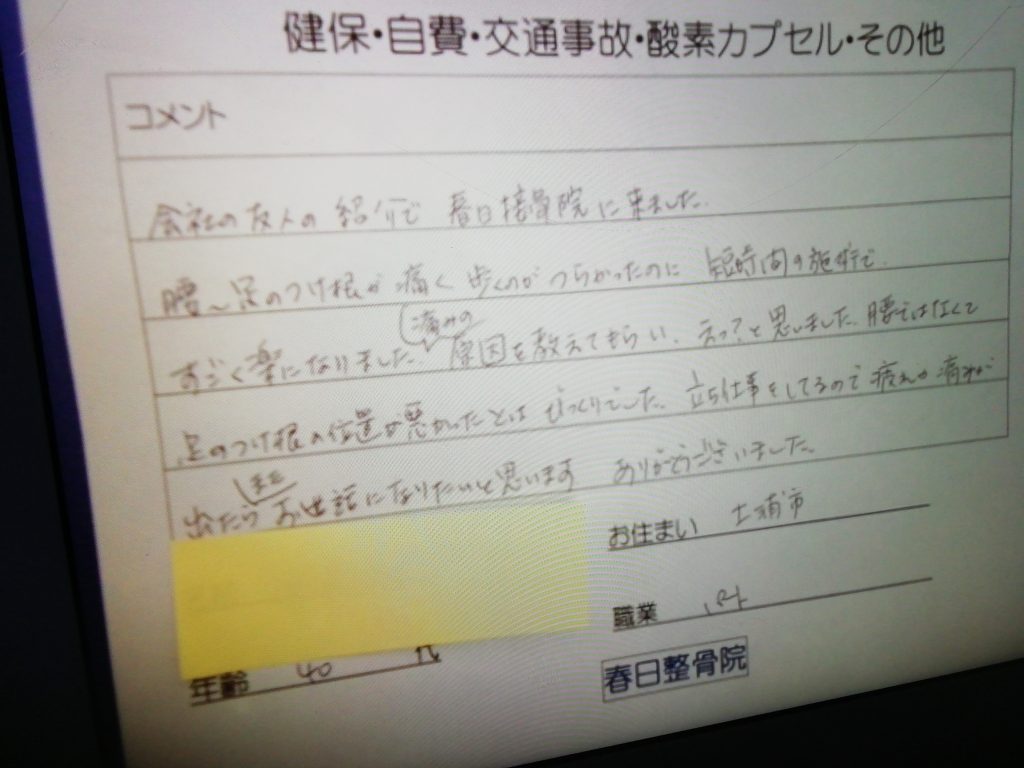 健保・自費・交通事故・酸素カプセル・その他
コメント
会社の友人の紹介で 春日接骨院に来ました。
腰〜足のつけ根が痛く 歩くのがつらかったのに 短時間の施術で、
すごく楽になりました。痛みの原因を教えてもらい、えっ?と思いました。腰ではなくて
足のつけ根の位置が悪かったとは びっくりでした。立ち仕事をしてるので疲れや痛みが
出たら またお世話になりたいと思います ありがとうございました。
お住まい 土浦市
職業 パート
年齢 40 代
春日整骨院